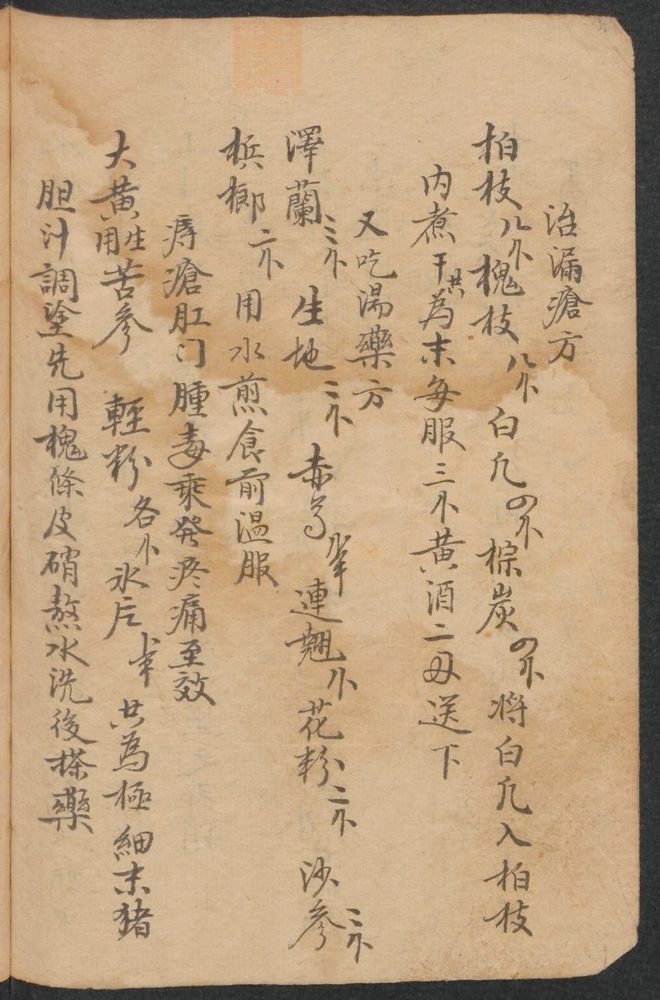 治漏瘡方
柏枝八个槐枝八个白凡四个棕炭四个将白凡入柏枝
内煮干共為末每服三个黄酒二母送下
又吃湯藥方
澤蘭三个生地三个赤芍連翹个花粉二个沙參三个
檳榔二个用水煎食前温服
痔瘡肛门腫毒乘發疼痛至效
大黄生用苦參輕粉各个氷片共為極細末猪
胆汁調塗先用槐條皮硝熬水洗後搽藥